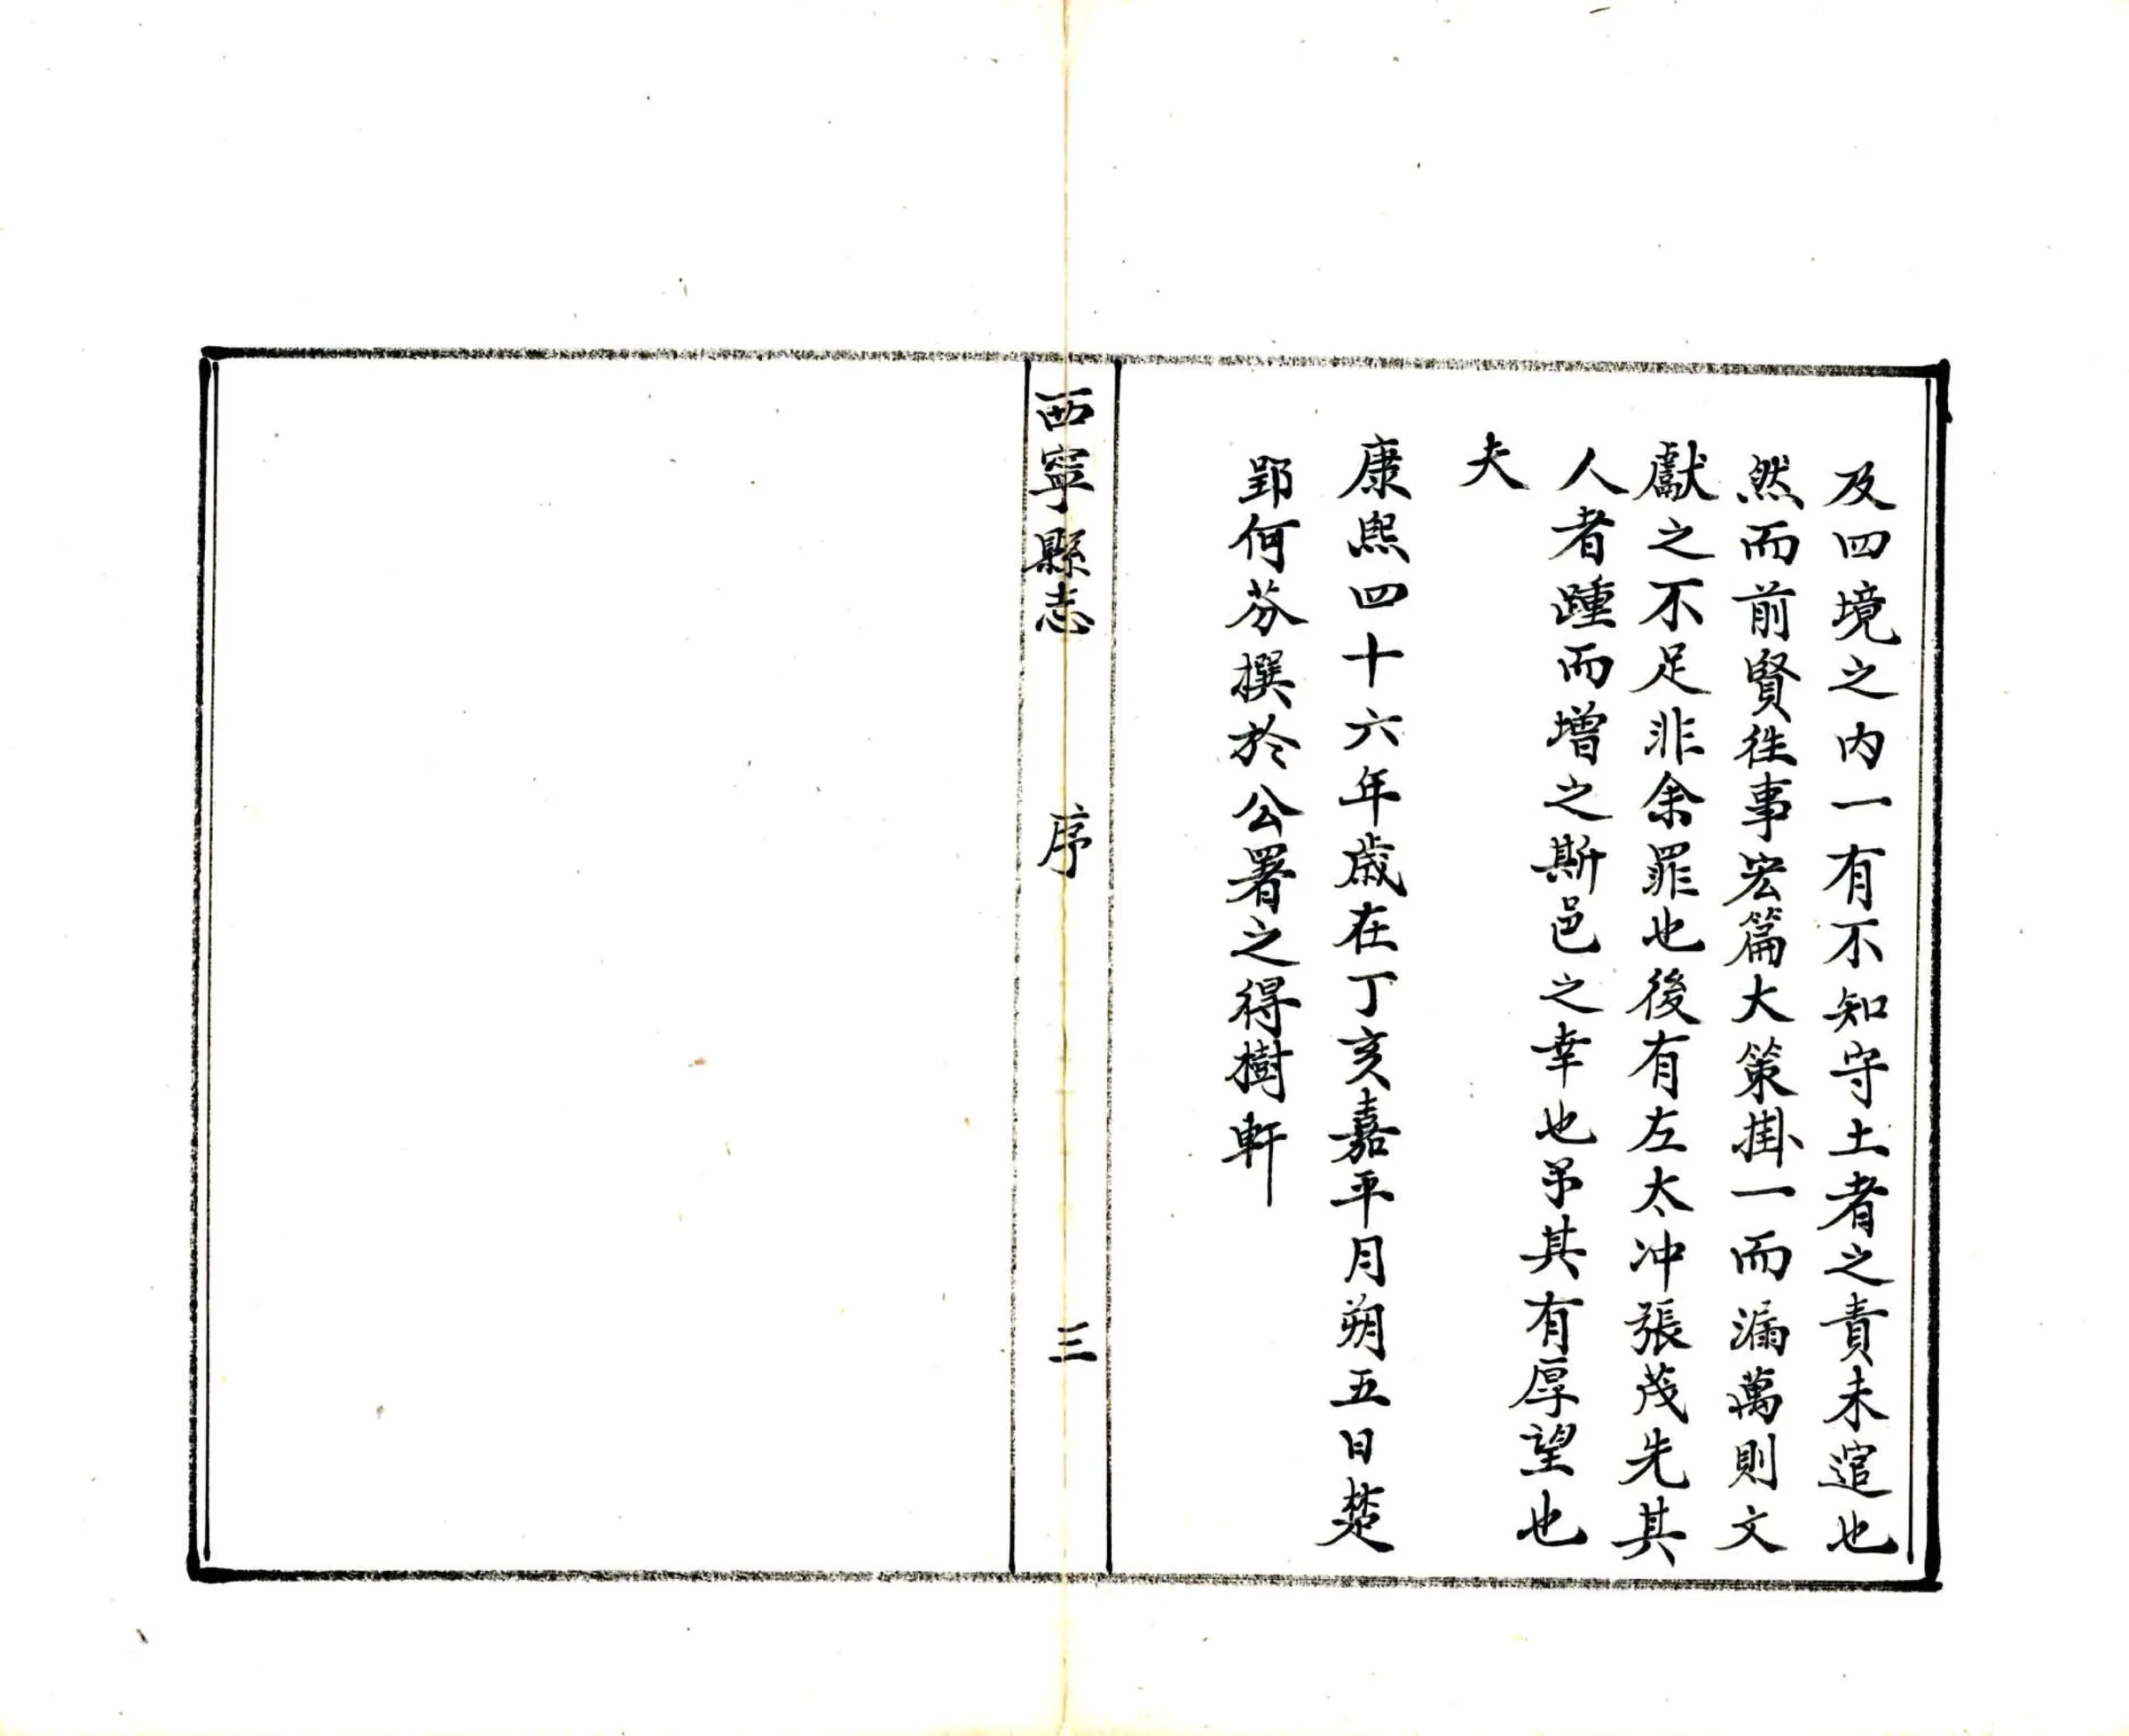 及四境之内一有不知守土者之責未逭也
然而前賢徃事宏篇大策掛一而漏萬則文
獻之不足非余罪也後有左太冲張茂先其
人者踵而增之斯邑之幸也予其有厚望也
夫
康熙四十六年歲在丁亥嘉平月朔五日楚
郢何芬撰於公署之得樹軒
西寧縣志 序 三